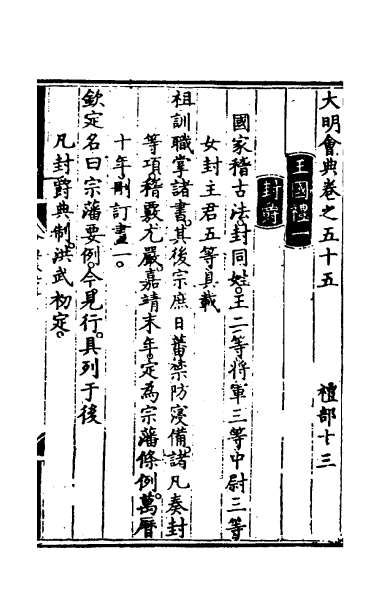 大明會典卷之五十五 禮部十三
王國禮一
封爵
國家稽古法封同姓王二等將軍三等中尉三等
女封主君五等具載
祖訓職掌諸書其後宗庶日蕃禁防寖備諸凡奏封
等項稽覈尤嚴嘉靖末年定為宗藩條例萬曆
十年刪訂畫一
欽定名曰宗藩要例今見行具列于後
凡封爵典制洪武初定